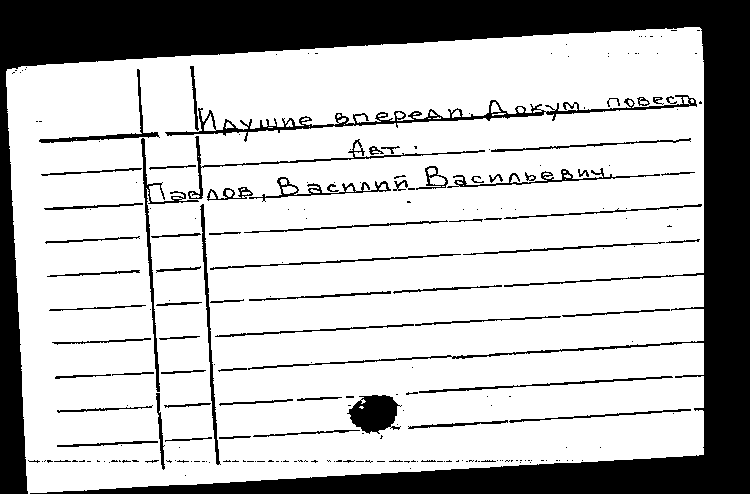 Идущие впереди. Докум. повесть.
Авт.:
Павлов, Василий Васильевич.